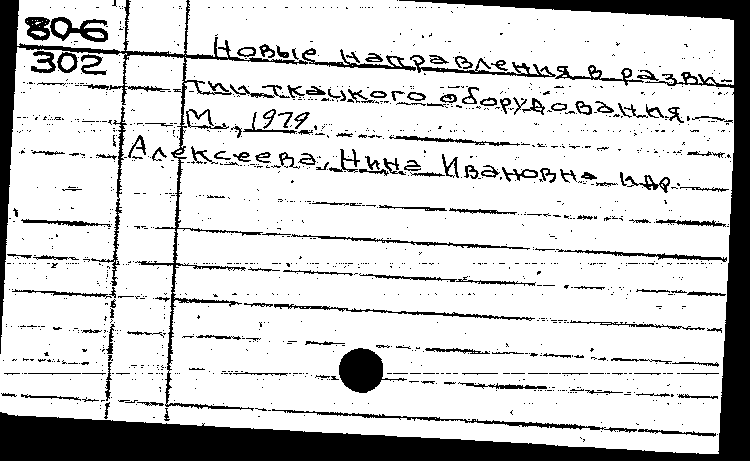 80-6
302
Новые направления в разви-
тии ткацкого оборудования.
М., 1979.
Алексеева, Нина Ивановна и др.